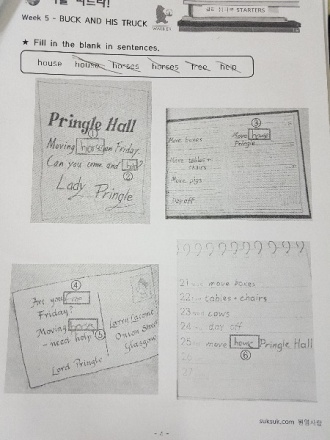 Week 5 - BUCK AND HIS TRUCK
STARTERS
★ Fill in the blank in sentences.
house house horses horses free help
Pringle Hall
①
Moving house on Friday.
Can you come and help?
②
Lady Pringle
③
Move boxes
Move house
Pringle
Move tables +
chairs
Move pigs
Day off
④
Are you free
Friday?
Moving
- need help ⑤
Lord Pringle
Larry
Onion Street
Glasgow
21 move boxes
22 tables + chairs
23 cows
24 day off
25 move house Pringle Hall
⑥
26
27
- 2 -
suksuk.com